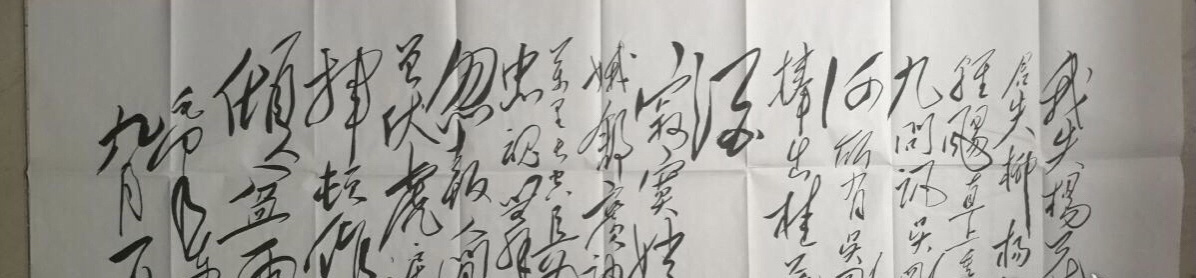 我失楊花
君失柳楊
輕颺直上重
九問訊吳剛
何所有吳剛
捧出桂花
酒
寂寞嫦
娥舒廣袖
萬里長空且為
忠魂
忽報人間
曾伏虎淚
飛頓作
傾盆雨
九月